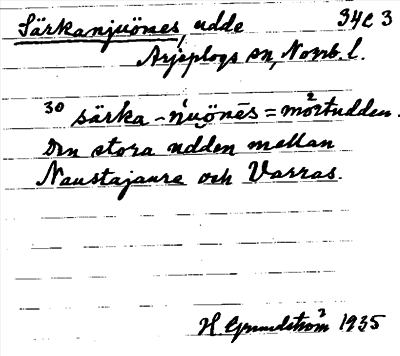 Särkanjuönes, udde 34C 3
Arjeplogs sn, Norrb. l.
30 särka-njuönēs = mörtudden.
Den stora udden mellan
Naustajaure och Varras.
H. Grundström 1935